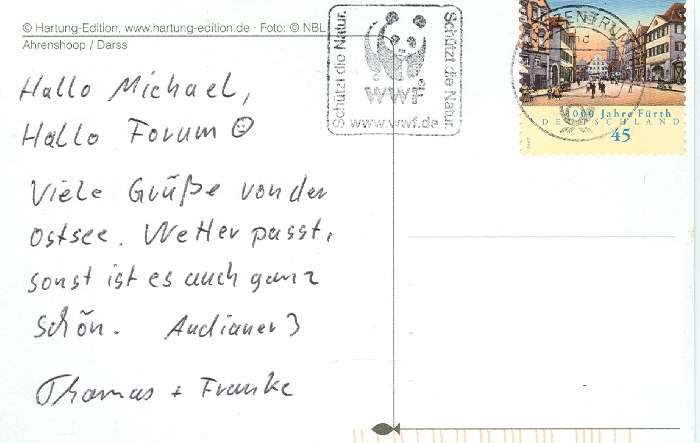 © Hartung-Edition, www.hartung-edition.de · Foto: © NBL
Ahrenshoop / Darss
Schützt die Natur.
WWF
www.wwf.de
Schützt die Natur.
1000 Jahre Fürth
DEUTSCHLAND
45
Hallo Michael,
Hallo Forum ☺
Viele Grüße von der
Ostsee. Wetter passt,
sonst ist es auch ganz
schön. Audianer3
Thomas + Franke